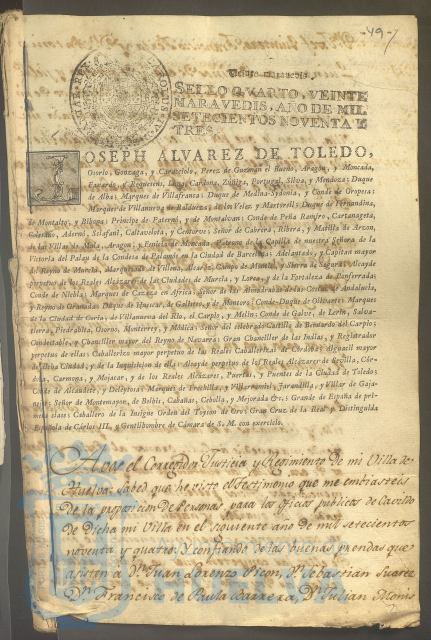 -49-
Veinte maravedis.
SELLO QVARTO, VEINTE
MARAVEDIS, AÑO DE MIL
SETECIENTOS NOVENTA Y
TRES.
JOSEPH ALVAREZ DE TOLEDO,
Osorio, Gonzaga, y Caracciolo, Perez de Guzman el Bueno, Aragon, y Moncada,
Faxardo, y Requesens, Luna, Cardona, Zuñiga, Portugal, Silva, y Mendoza: Duque
de Alba: Marques de Villafranca: Duque de Medina-Sydonia, y Conde de Oropesa:
Marques de Villanueva de Valdueza; de los Velez, y Martorell: Duque de Fernandina,
de Montalto, y Bibona: Principe de Paternó, y de Montalvan: Conde de Peña Ramiro, Cartanageta,
Golisano, Adernó, Sclafani, Caltavelota, y Centorve: Señor de Cabrera, Ribera, y Matilla de Arzon,
de las Villas de Mula, Aragon, y Patron de la Capilla de nuestra Señora de la
Victoria del Palau de la Condesa de Palamós en la Ciudad de Barcelona: Adelantado, y Capitan mayor
del Reyno de Murcia, Marquesado de Villena, Alcaráz, Campo de Montiel, y Sierra de Segura: Alcayde
perpetuo de los Reales Alcázares de las Ciudades de Murcia, y Lorca, y de la Fortaleza de Ponferrada:
Conde de Niebla: Marques de Cazaza en Africa: Señor de las Almadrabas de las Costas de Andalucía,
y Reyno de Granada: Duque de Huescar, de Galisteo, y de Montoro: Conde-Duque de Olivares: Marques
de la Ciudad de Coria, de Villanueva del Rio, el Carpio, y Eliche: Conde de Galve, de Lerin, Salva-
tierra, Piedrahita, Osorno, Monterrey, y Módica: Señor del celebrado Castillo de Bernardo del Carpio;
Condestable, y Chanciller mayor del Reyno de Navarra: Gran Chanciller de las Indias, y Registrador
perpetuo de ellas: Caballerizo mayor perpetuo de las Reales Caballerizas de Córdoba: Alguacil mayor
de dicha Ciudad, y de la Inquisicion de ella: Alcayde perpetuo de los Reales Alcázares de Sevilla, Cór-
doba, Carmona, y Mojacar, y de los Reales Alcázares, Puertas, y Puentes de la Ciudad de Toledo:
Conde de Alcaudete, y Deleytosa: Marques de Frechilla, y Villarramiel, Jarandilla, y Villar de Gaja-
nejos: Señor de Montemayor, de Belbis, Cabañas, Cebolla, y Mejorada &c.: Grande de España de pri-
mera clase: Caballero de la Insigne Orden del Toyson de Oro: Gran Cruz de la Real y Distinguida
Española de Cárlos III, y Gentilhombre de Cámara de S. M. con exercicio.
A vos el Corregidor, Justicia y Regimiento de mi Villa de
Huelva: Sabed que he visto el testimonio que me embiasteis
de la proposicion de Personas, para los oficios publicos de Cavildo
de dicha mi Villa en el siguiente año de mil setecientos
noventa y quatro; y confiando de las buenas prendas que
asisten a Dn. Juan Lorenzo Picon, Dn. Sebastian Suarez
Dn. Francisco de Paula Barrera, Dn. Julian